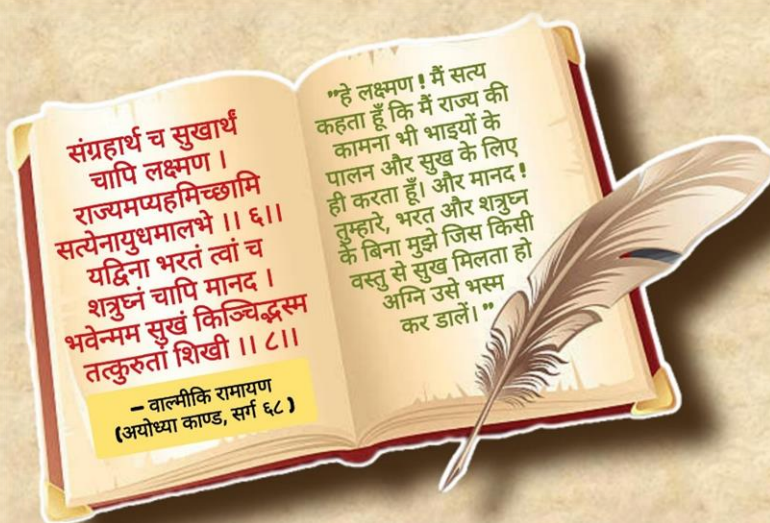 संग्रहार्थ च सुखार्थं
चापि लक्ष्मण ।
राज्यमप्यहमिच्छामि
सत्येनायुधमालभे ।। ६।।
यद्विना भरतं त्वां च
शत्रुघ्नं चापि मानद ।
भवेन्मम सुखं किञ्चिद्भस्म
तत्कुरुतां शिखी ।। ८।।
– वाल्मीकि रामायण
(अयोध्या काण्ड, सर्ग ६८ )
"हे लक्ष्मण ! मैं सत्य
कहता हूँ कि मैं राज्य की
कामना भी भाइयों के
पालन और सुख के लिए
ही करता हूँ। और मानद !
तुम्हारे, भरत और शत्रुघ्न
के बिना मुझे जिस किसी
वस्तु से सुख मिलता हो
अग्नि उसे भस्म
कर डालें। "